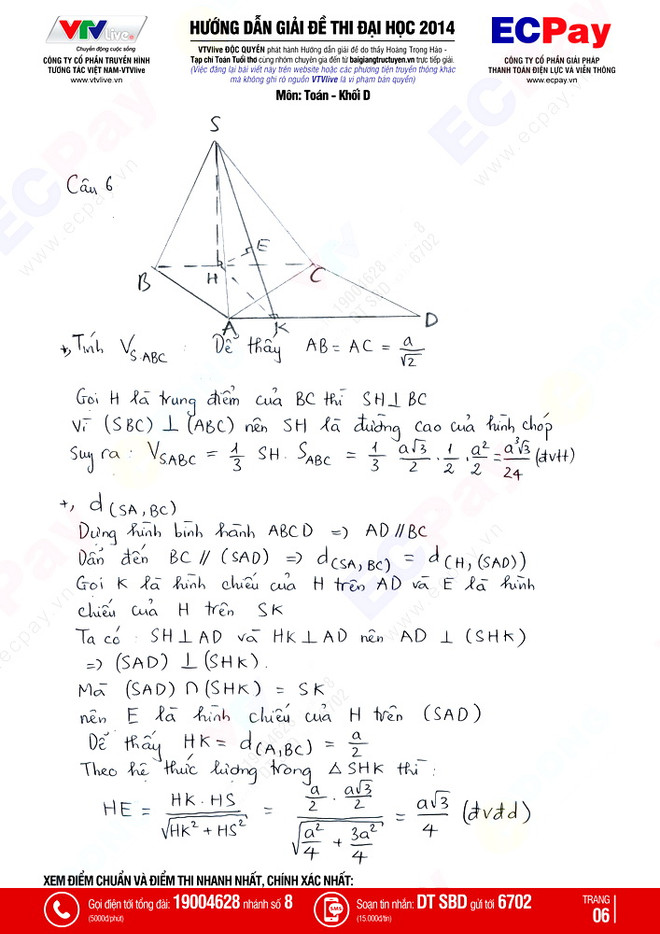 VTV Live
Chuyển động cuộc sống
CÔNG TY CỔ PHẦN TRUYỀN HÌNH
TƯƠNG TÁC VIỆT NAM-VTVlive
www.vtvlive.vn
HƯỚNG DẪN GIẢI ĐỀ THI ĐẠI HỌC 2014
VTVlive ĐỘC QUYỀN phát hành Hướng dẫn giải đề do thầy Hoàng Trọng Hảo -
Tạp chí Toán Tuổi thơ cùng nhóm chuyên gia đến từ baigiangtructuyen.vn trực tiếp giải.
(Việc đăng lại bài viết này trên website hoặc các phương tiện truyền thông khác
mà không ghi rõ nguồn VTVlive là vi phạm bản quyền)
Môn: Toán - Khối D
ECPay
CÔNG TY CỔ PHẦN GIẢI PHÁP
THANH TOÁN ĐIỆN LỰC VÀ VIỄN THÔNG
www.ecpay.vn
Câu 6
S
E
B
H
C
A
K
D
+, Tính V_{S.ABC} : Dễ thấy AB = AC = a/√2
Gọi H là trung điểm của BC thì SH ⊥ BC
Vì (SBC) ⊥ (ABC) nên SH là đường cao của hình chóp
Suy ra : V_{SABC} = 1/3 SH. S_{ABC} = 1/3 a√3/2 . 1/2 . a²/2 = a³√3/24 (đvtt)
+, d(SA, BC)
Dựng hình bình hành ABCD => AD // BC
Dẫn đến BC // (SAD) => d(SA, BC) = d(H, (SAD))
Gọi K là hình chiếu của H trên AD và E là hình
chiếu của H trên SK
Ta có : SH ⊥ AD và HK ⊥ AD nên AD ⊥ (SHK)
=> (SAD) ⊥ (SHK).
Mà (SAD) ∩ (SHK) = SK
nên E là hình chiếu của H trên (SAD)
Dễ thấy HK = d(A, BC) = a/2
Theo hệ thức lượng trong △SHK thì :
HE = HK . HS / √(HK² + HS²) = (a/2 . a√3/2) / √(a²/4 + 3a²/4) = a√3/4 (đvđd)
XEM ĐIỂM CHUẨN VÀ ĐIỂM THI NHANH NHẤT, CHÍNH XÁC NHẤT:
Gọi điện tới tổng đài: 19004628 nhánh số 8
(5000đ/phút)
SMS
Soạn tin nhắn: DT SBD gửi tới 6702
(15.000đ/tin)
TRANG
06